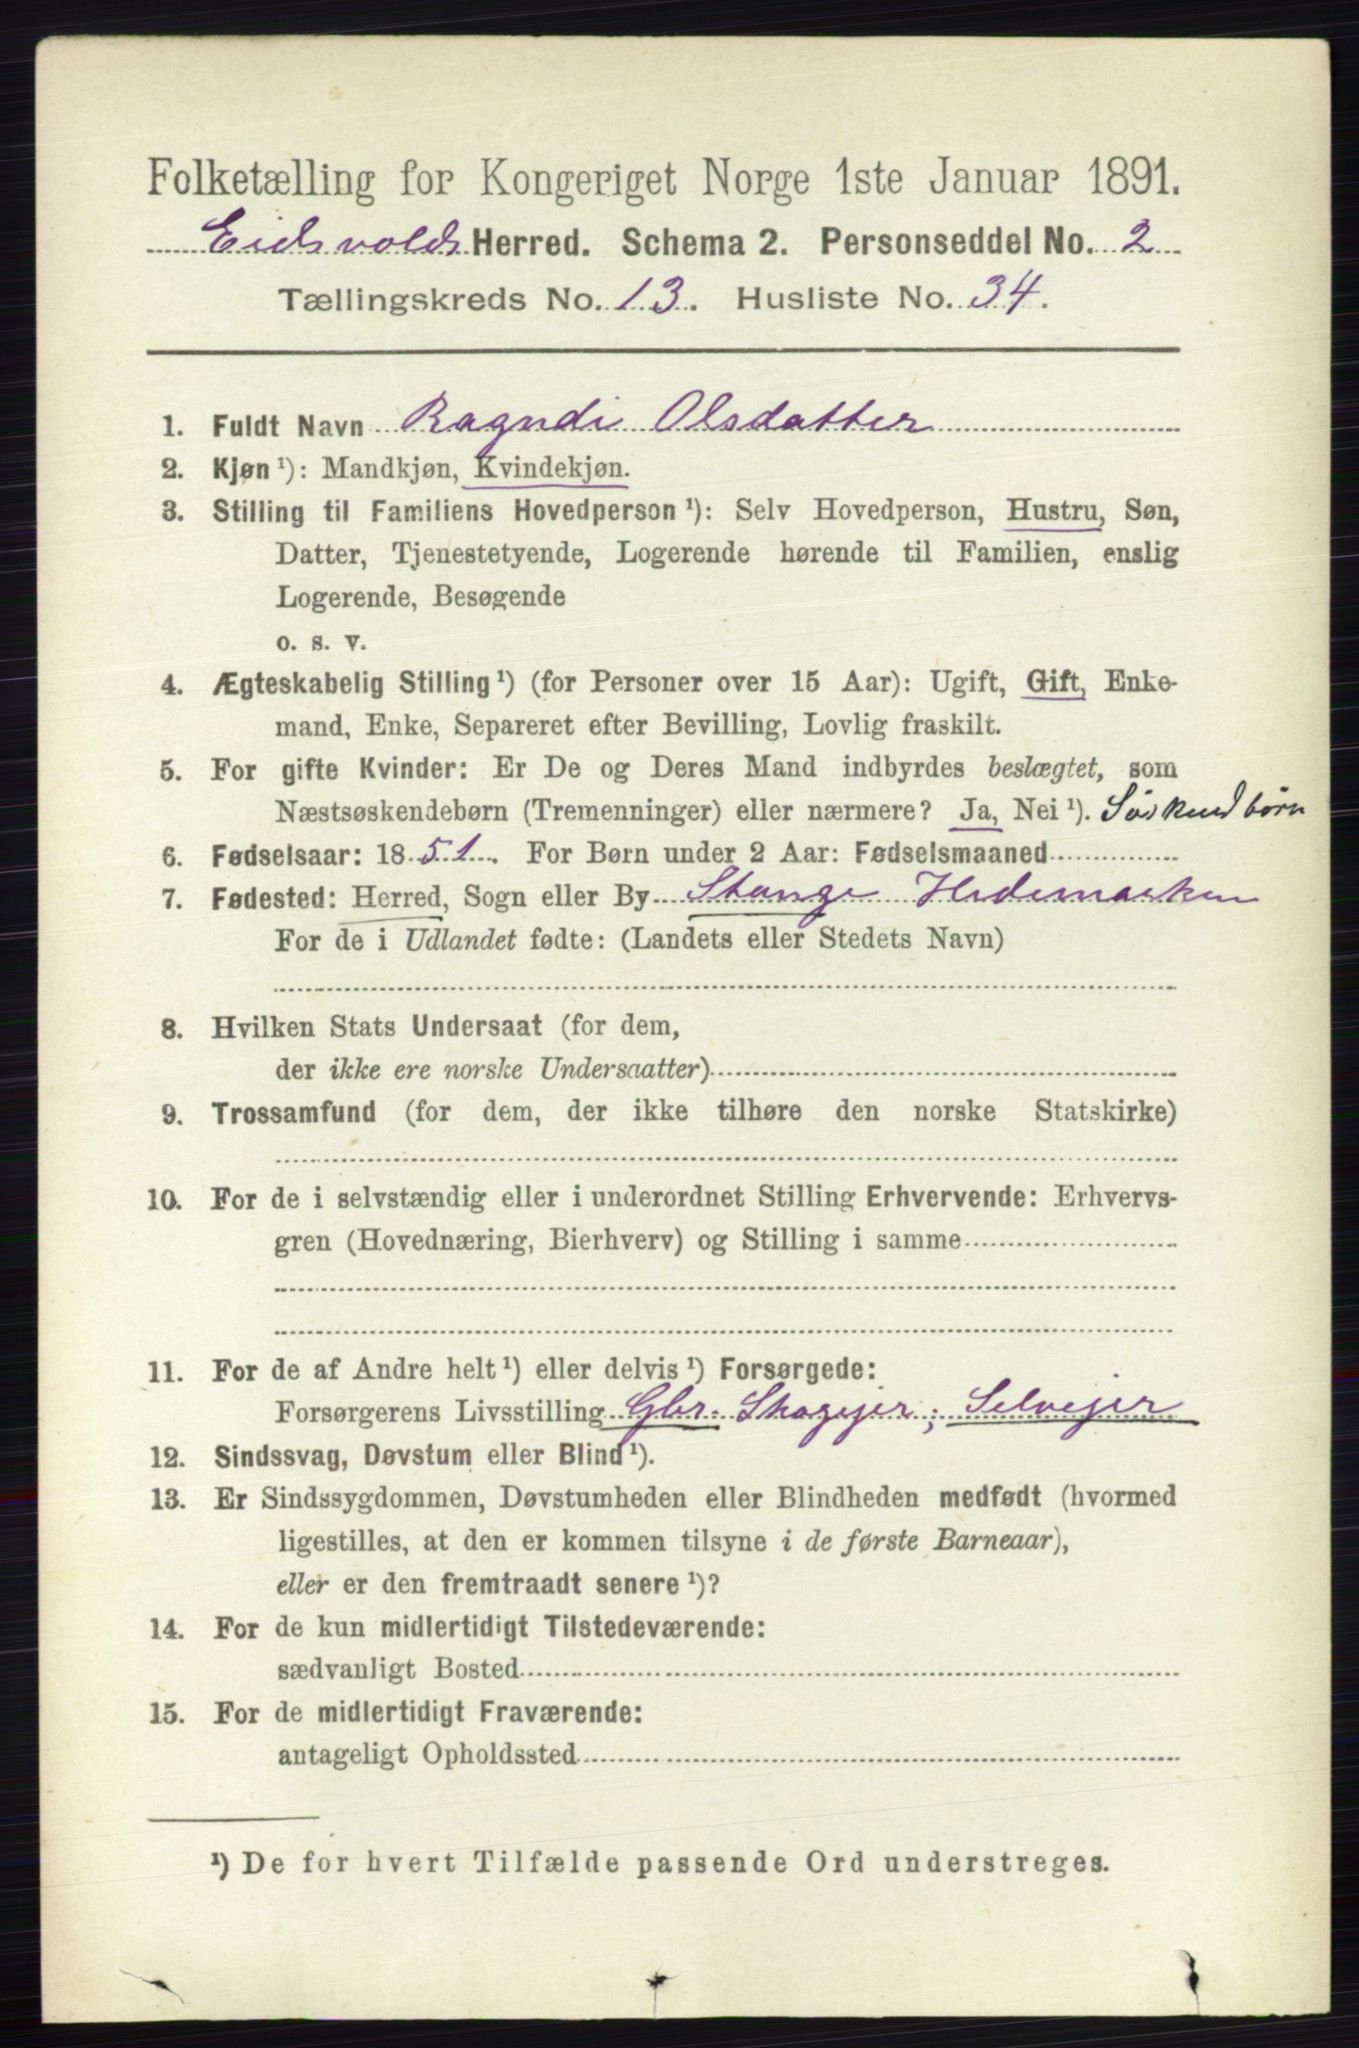 Folketælling for Kongeriget Norge 1ste Januar 1891.
Eidsvolds Herred. Schema 2. Personseddel No. 2
Tællingskreds No. 13. Husliste No. 34.
1. Fuldt Navn Ragndi Olsdatter
2. Kjøn ¹): Mandkjøn, Kvindekjøn.
3. Stilling til Familiens Hovedperson ¹): Selv Hovedperson, Hustru, Søn,
Datter, Tjenestetyende, Logerende hørende til Familien, enslig
Logerende, Besøgende
o. s. v.
4. Ægteskabelig Stilling ¹) (for Personer over 15 Aar): Ugift, Gift, Enke-
mand, Enke, Separeret efter Bevilling, Lovlig fraskilt.
5. For gifte Kvinder: Er De og Deres Mand indbyrdes beslægtet, som
Næstsøskendebørn (Tremenninger) eller nærmere? Ja, Nei ¹). Søskendbørn
6. Fødselsaar: 1851. For Børn under 2 Aar: Fødselsmaaned
7. Fødested: Herred, Sogn eller By Stange Hedemarken
For de i Udlandet fødte: (Landets eller Stedets Navn)
8. Hvilken Stats Undersaat (for dem,
der ikke ere norske Undersaatter)
9. Trossamfund (for dem, der ikke tilhøre den norske Statskirke)
10. For de i selvstændig eller i underordnet Stilling Erhvervende: Erhvervs-
gren (Hovednæring, Bierhverv) og Stilling i samme
11. For de af Andre helt ¹) eller delvis ¹) Forsørgede:
Forsørgerens Livsstilling Gbr. Skogejer; Selvejer
12. Sindssvag, Døvstum eller Blind ¹).
13. Er Sindssygdommen, Døvstumheden eller Blindheden medfødt (hvormed
ligestilles, at den er kommen tilsyne i de første Barneaar),
eller er den fremtraadt senere ¹)?
14. For de kun midlertidigt Tilstedeværende:
sædvanligt Bosted
15. For de midlertidigt Fraværende:
antageligt Opholdssted
¹) De for hvert Tilfælde passende Ord understreges.